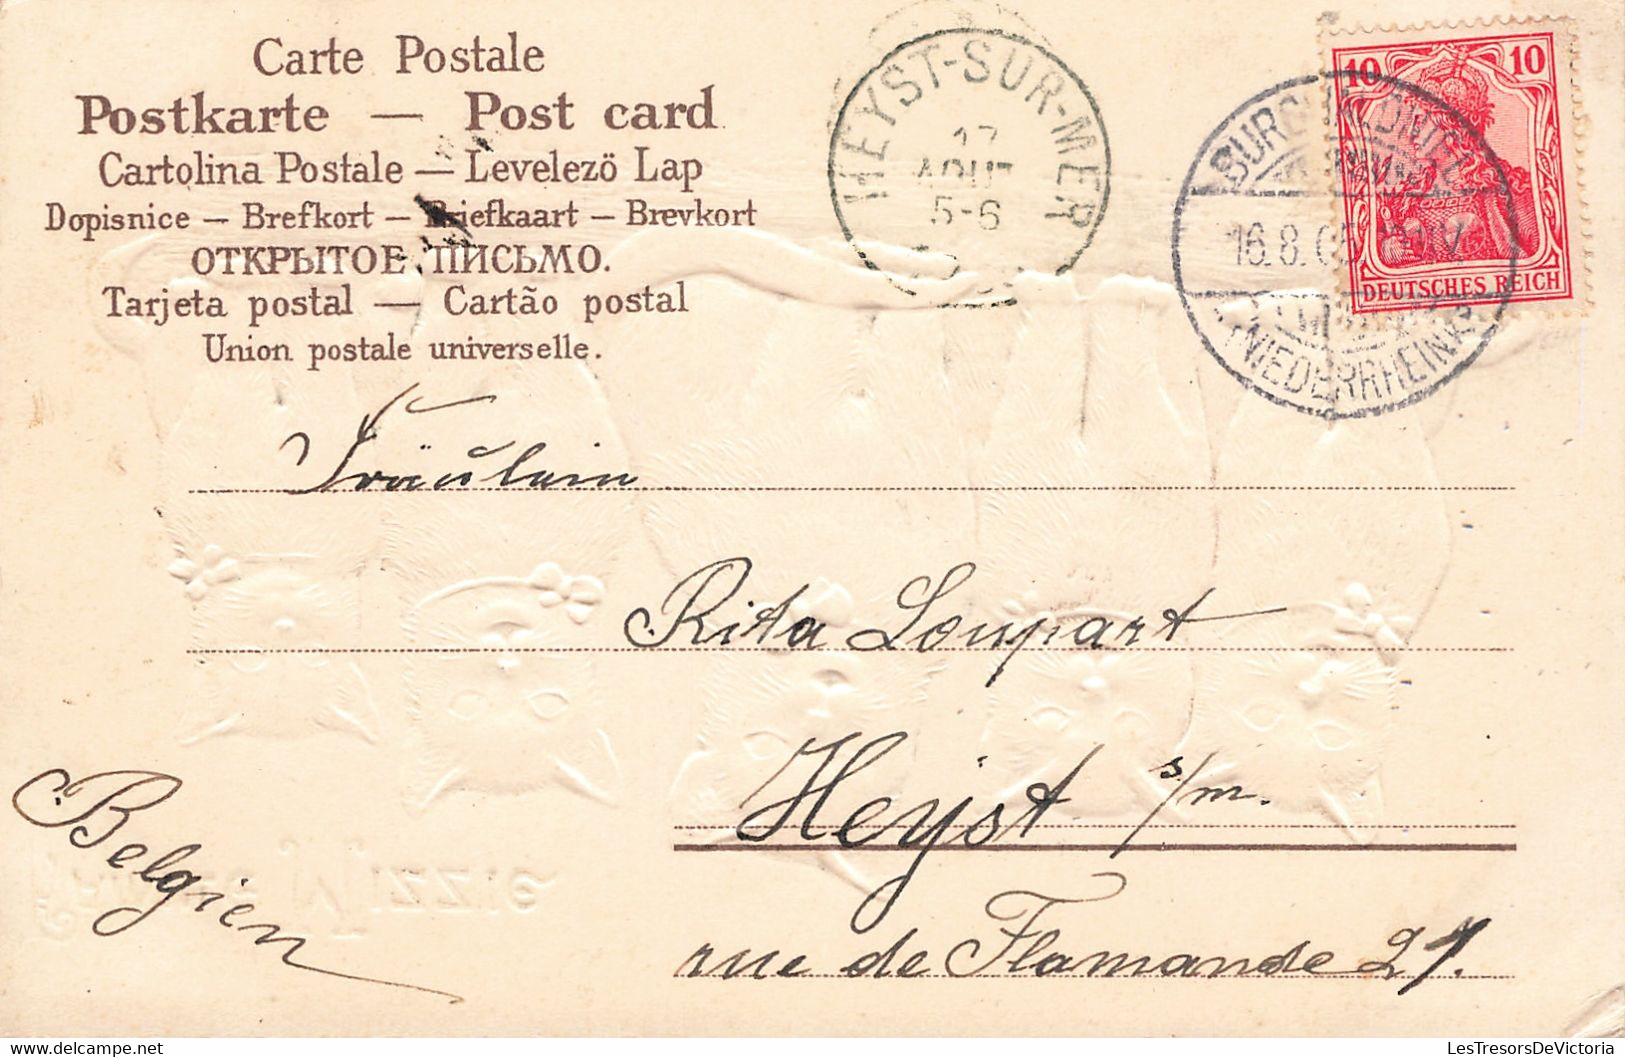 Carte Postale
Postkarte — Post card
Cartolina Postale — Levelező Lap
Dopisnice — Brefkort — Briefkaart — Brevkort
ОТКРЫТОЕ ПИСЬМО.
Tarjeta postal — Cartão postal
Union postale universelle.
HEYST-SUR-MER
17
AOUT
5-6
16.8.05.
(NIEDERRHEIN)
10 10
DEUTSCHES REICH
Fräulein
Rita Loupart
Heyst s/m.
rue de Flamande 27.
Belgien
LesTresorsDeVictoria